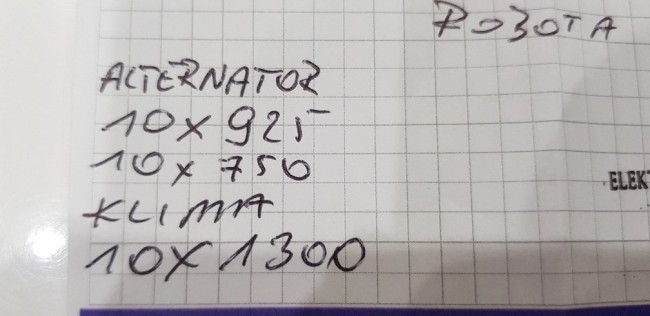 ROBOTA
ALTERNATOR
10x925
10x750
ELEKT
KLIMA
10X1300